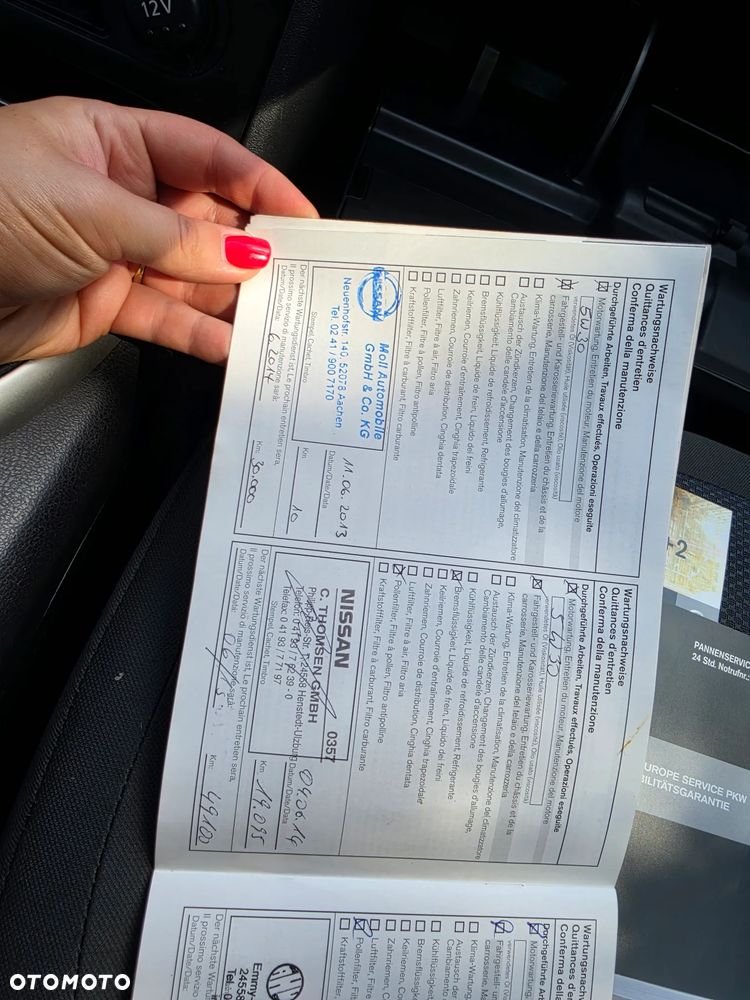 12V
Wartungsnachweise
Quittances d'entretien
Conferma della manutenzione
Durchgeführte Arbeiten, Travaux effectués, Operazioni eseguite
Motorwartung, Entretien du moteur, Manutenzione del motore
verwendetes Öl (Viskosität), Huile utilisée (viscosité), Olio usato (viscosità)
5W30
Fahrgestell- und Karosseriewartung, Entretien du châssis et de la
carrosserie, Manutenzione del telaio e della carrozzeria
Klima-Wartung, Entretien de la climatisation, Manutenzione del climatizzatore
Austausch der Zündkerzen, Changement des bougies d'allumage,
Cambiamento delle candele d'accensione
Kühlflüssigkeit, Liquide de refroidissement, Refrigerante
Bremsflüssigkeit, Liquide de frein, Liquido dei freni
Keilriemen, Courroie d'entraînement, Cinghia trapezoidale
Zahnriemen, Courroie de distribution, Cinghia dentata
Luftfilter, Filtre à air, Filtro aria
Pollenfilter, Filtre à pollen, Filtro antipolline
Kraftstofffilter, Filtre à carburant, Filtro carburante
NISSAN
Moll Automobile
GmbH & Co. KG
Neuenhofstr. 140, 52078 Aachen
Tel. 02 41 / 900 7170
Stempel, Cachet, Timbro
11.06.2013
Datum/Date/Data
10
Km
Der nächste Wartungsdienst ist, Le prochain entretien sera,
Il prossimo servizio di manutenzione sarà:
Datum/Date/Data: 6.2014
Km: 30.000
Wartungsnachweise
Quittances d'entretien
Conferma della manutenzione
Durchgeführte Arbeiten, Travaux effectués, Operazioni eseguite
Motorwartung, Entretien du moteur, Manutenzione del motore
verwendetes Öl (Viskosität), Huile utilisée (viscosité), Olio usato (viscosità)
5W30
Fahrgestell- und Karosseriewartung, Entretien du châssis et de la
carrosserie, Manutenzione del telaio e della carrozzeria
Klima-Wartung, Entretien de la climatisation, Manutenzione del climatizzatore
Austausch der Zündkerzen, Changement des bougies d'allumage,
Cambiamento delle candele d'accensione
Kühlflüssigkeit, Liquide de refroidissement, Refrigerante
Bremsflüssigkeit, Liquide de frein, Liquido dei freni
Keilriemen, Courroie d'entraînement, Cinghia trapezoidale
Zahnriemen, Courroie de distribution, Cinghia dentata
Luftfilter, Filtre à air, Filtro aria
Pollenfilter, Filtre à pollen, Filtro antipolline
Kraftstofffilter, Filtre à carburant, Filtro carburante
NISSAN
C. THOMSEN GMBH 0357
24568 Henstedt-Ulzburg
Telefax: 0 41 93 / 7 71 97
Stempel, Cachet, Timbro
09.06.14
Datum/Date/Data
19.095
Km
Der nächste Wartungsdienst ist, Le prochain entretien sera,
Il prossimo servizio di manutenzione sarà:
Datum/Date/Data: 06/15
Km: 49100
Wartungsn
Quittances d
Conferma de
Durchgeführte Ar
Motorwartung,
verwendetes Öl (V
Fahrgestell- un
carrosserie, M
Klima-Wartung
Austausch der
Cambiamento
Kühlflüssigkeit
Bremsflüssigke
Keilriemen, Co
Zahnriemen, C
Luftfilter, Filtre
Pollenfilter, Filt
Kraftstofffilter,
Emmy-
2455
Tel.: 0
Der nächste Wart
Il prossimo servizio
Datum/Date/Data:
+2
PANNENSERVIC
24 Std. Notrufnr.:
UROPE SERVICE PKW
BILITÄTSGARANTIE
OTOMOTO